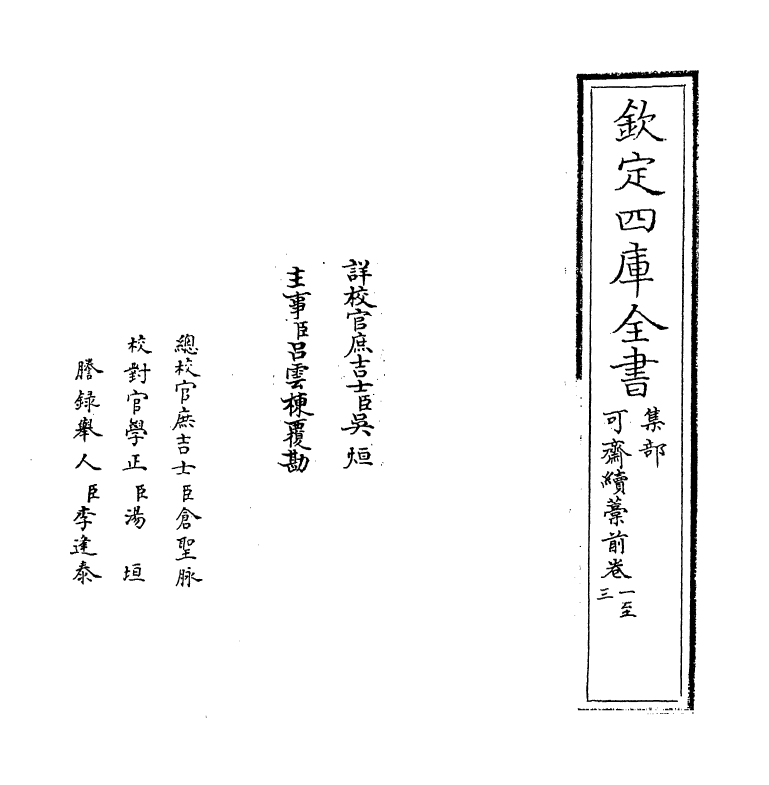 欽定四庫全書
集部
可齋續藁前卷一至三
詳校官庶吉士臣吳烜
主事臣呂雲棟覆勘
總校官庶吉士臣倉聖脉
校對官學正臣湯垣
謄錄舉人臣李逢泰